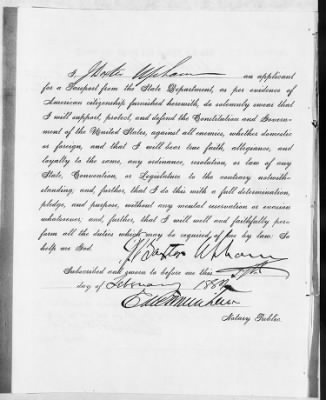 I, J Baxter Upham an applicant
for a Passport from the State Department, as per evidence of
American citizenship furnished herewith, do solemnly swear that
I will support, protect, and defend the Constitution and Govern-
ment of the United States, against all enemies, whether domestic
or foreign, and that I will bear true faith, allegiance, and
loyalty to the same, any ordinance, resolution, or law of any
State, Convention, or Legislature to the contrary notwith-
standing; and, further, that I do this with a full determination,
pledge, and purpose, without any mental reservation or evasion
whatsoever, and, further, that I will well and faithfully per-
form all the duties which may be required of me by law: So
help me God.
J. Baxter Upham
Subscribed and sworn to before me this
day of February 188
Notary Public.